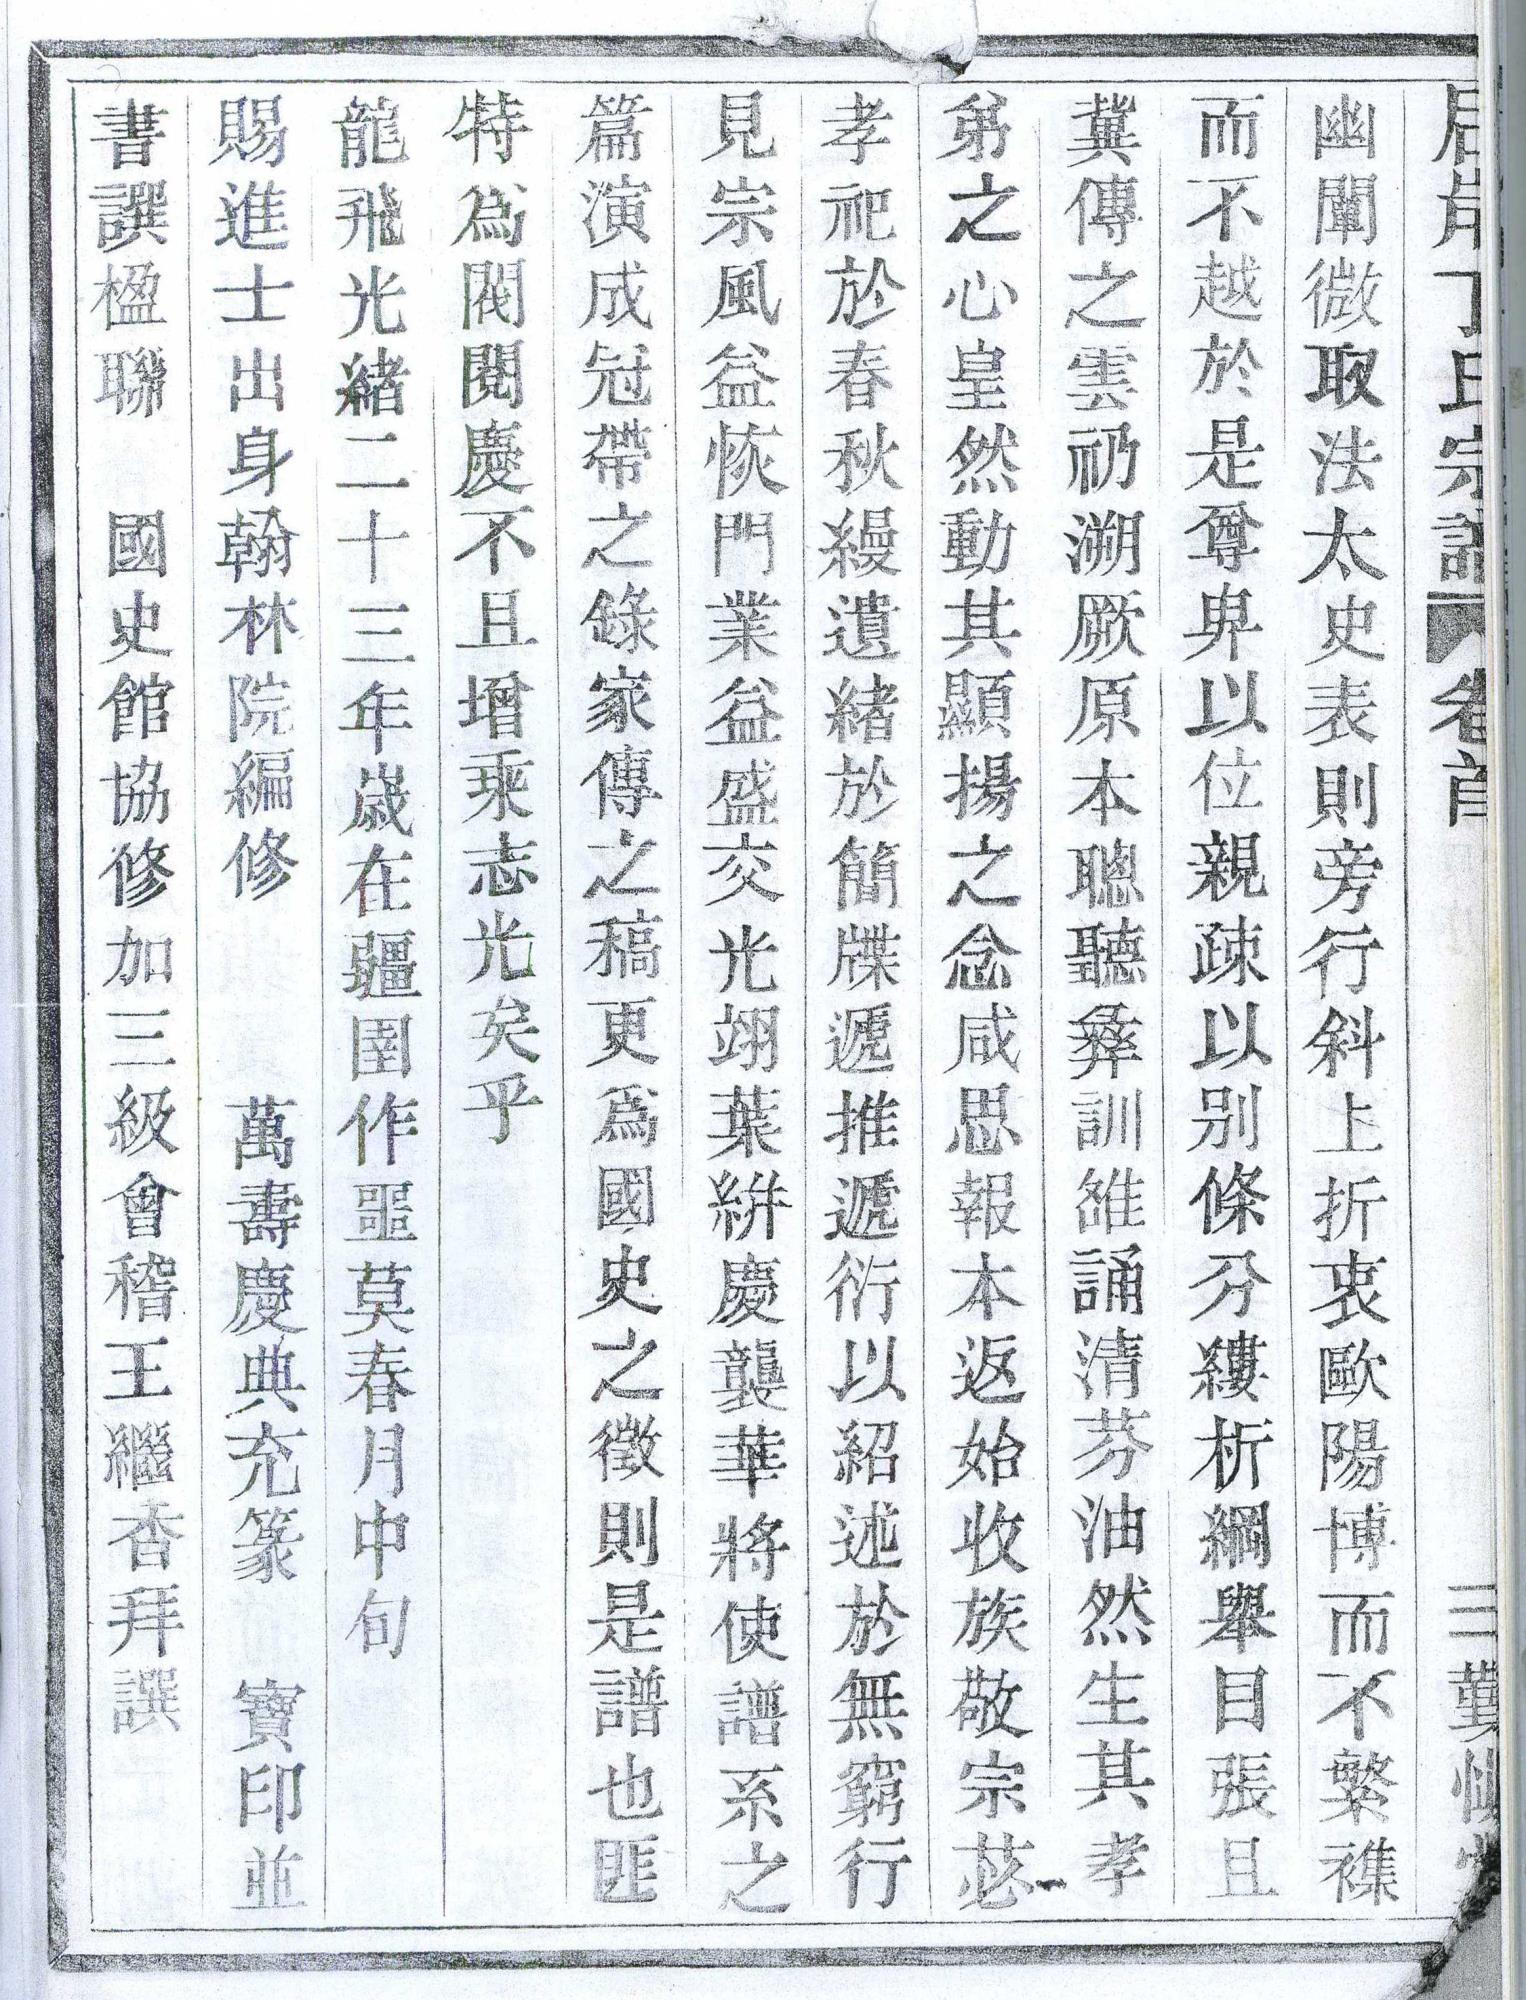 丁氏宗譜 卷首 三 勤慎
幽闡微取法太史表則旁行斜上折衷歐陽博而不繁襍
而不越於是尊卑以位親疎以别條分縷析綱舉目張且
冀傳之雲礽溯厥原本聰聽彝訓雒誦清芬油然生其孝
弟之心皇然動其顯揚之念咸思報本返始收族敬宗苾
孝祀於春秋縵遺緒於簡牒遞推遞衍以紹述於無窮行
見宗風益恢門業益盛交光翊葉絣慶襲華將使譜系之
篇演成冠帶之錄家傳之稿更爲國史之徵則是譜也匪
特爲閥閱慶不且增乘志光矣乎
龍飛光緒二十三年歲在疆圉作噩莫春月中旬
賜進士出身翰林院編修 萬壽慶典充篆 寶印並
書譔楹聯 國史館協修加三級會稽王繼香拜譔